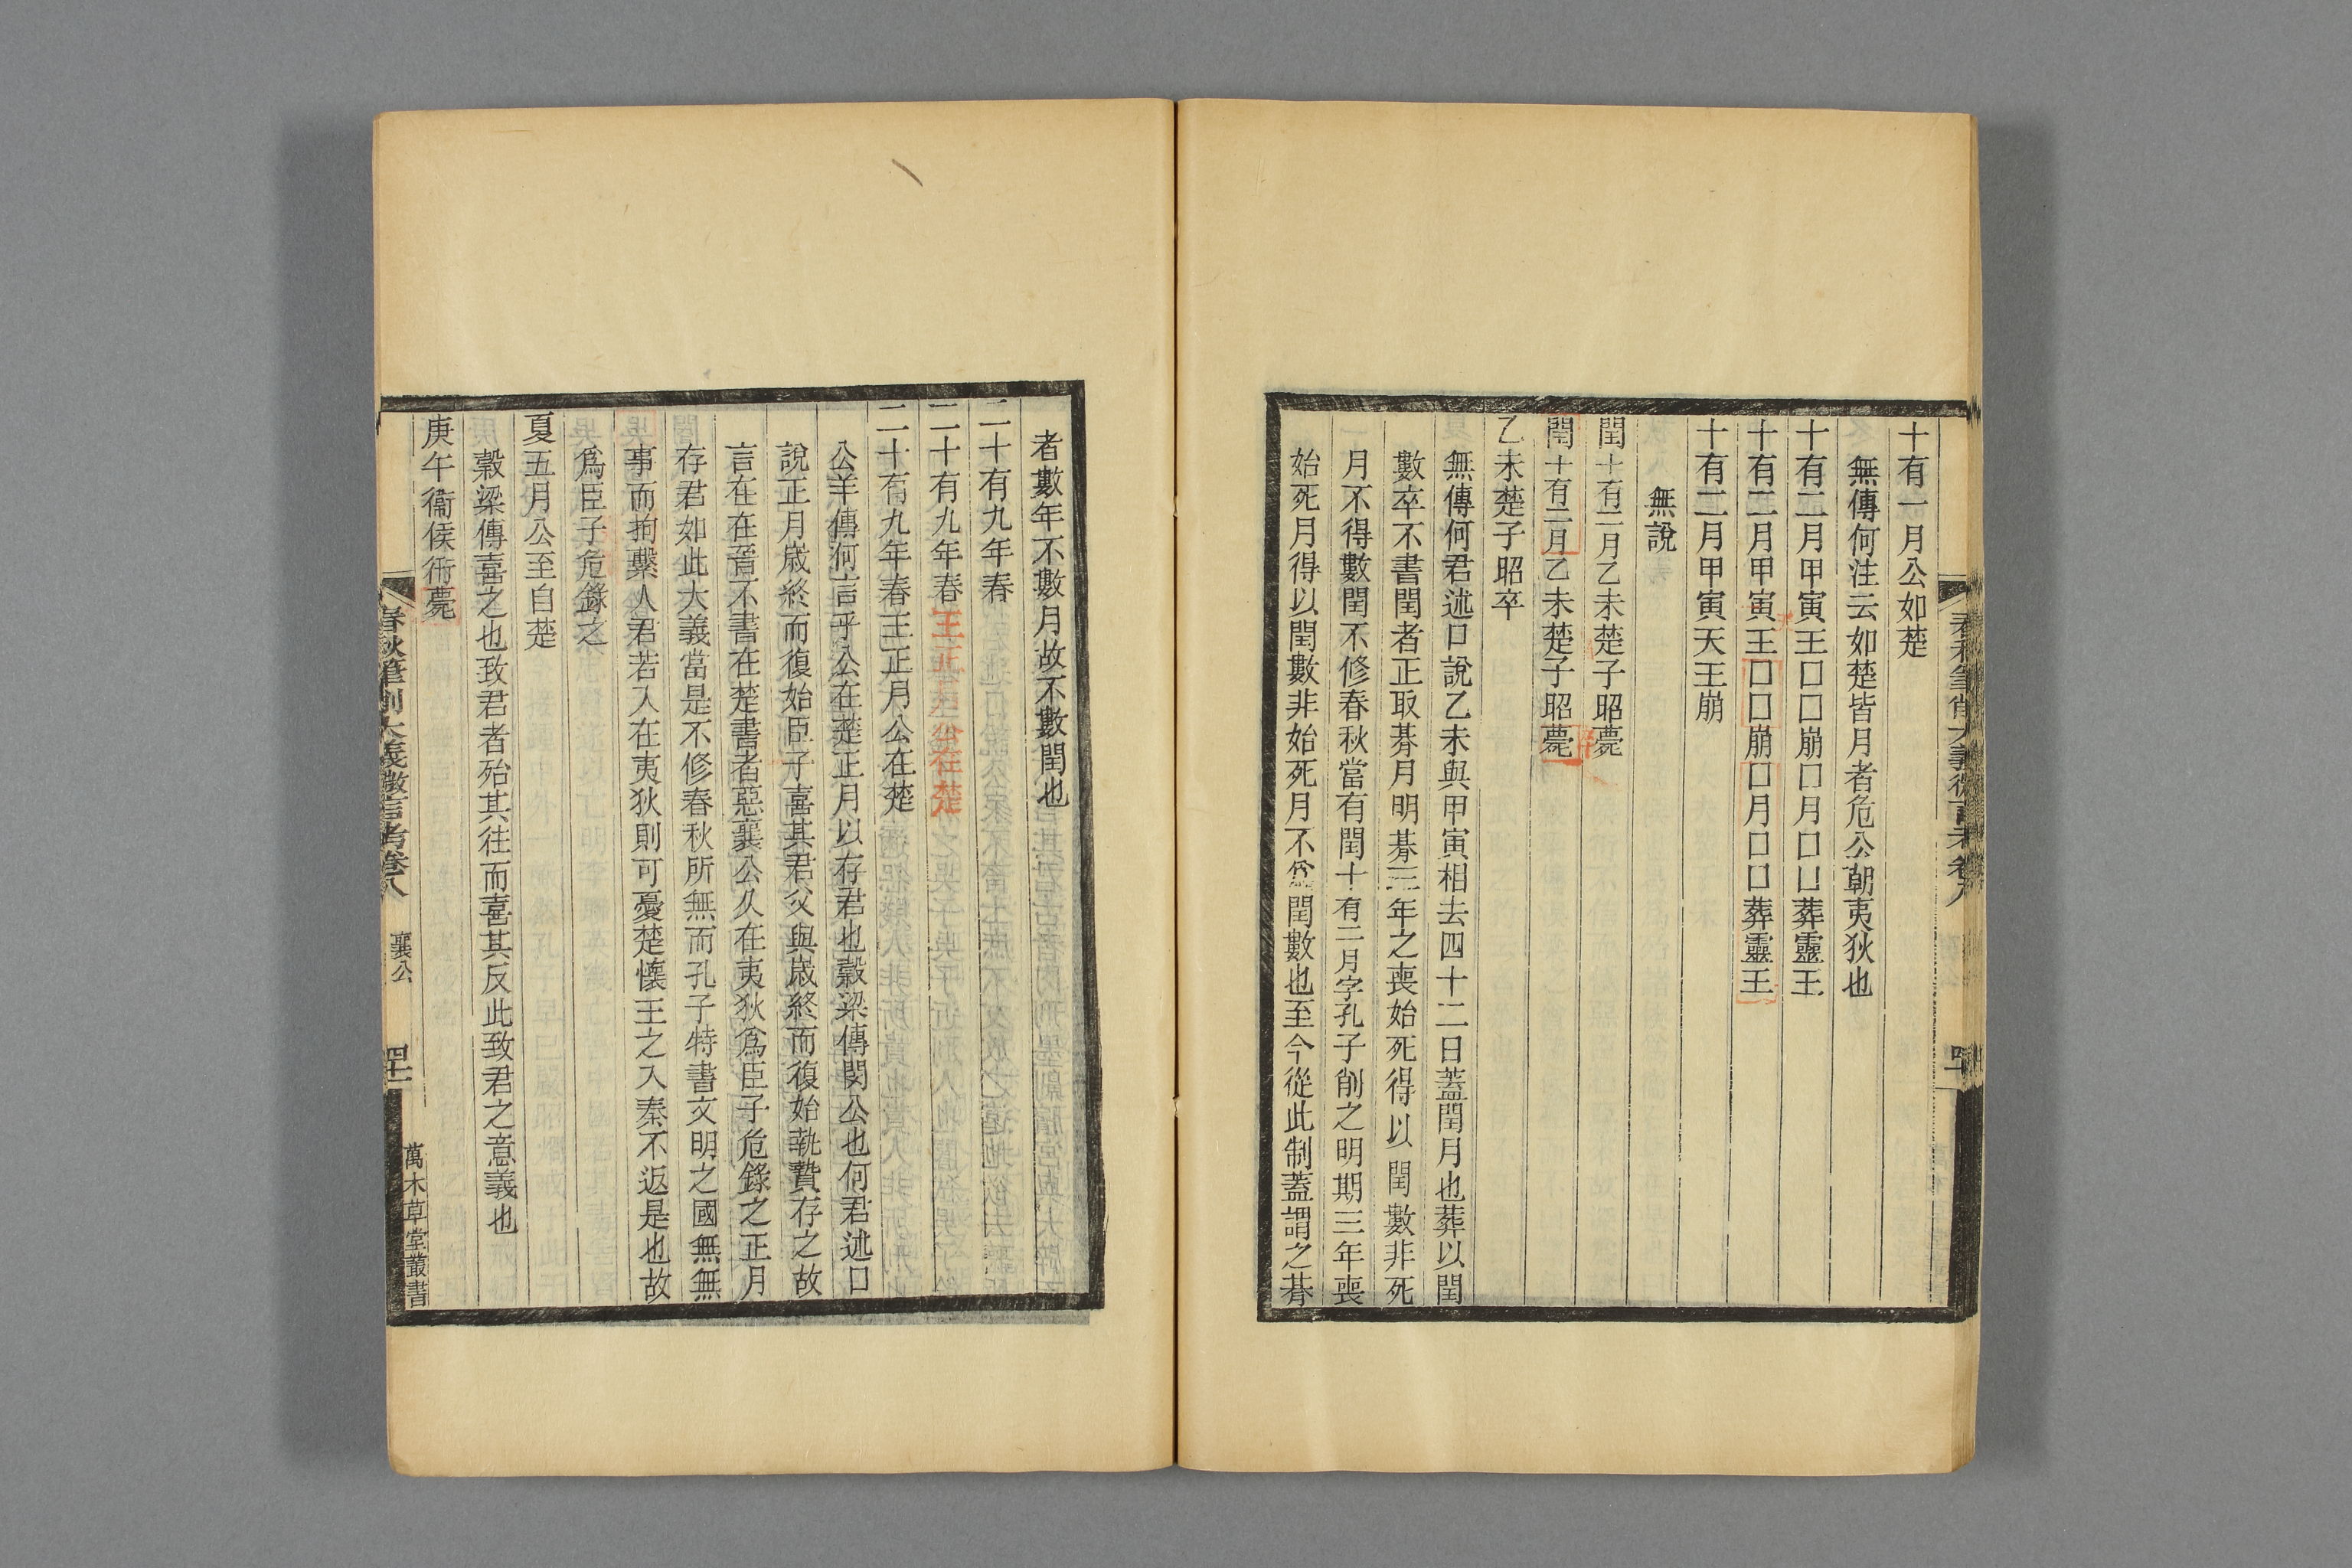 十有一月公如楚
無傳何注云如楚皆月者危公朝夷狄也
十有二月甲寅王囗囗崩囗月囗囗葬靈王
十有二月甲寅王囗囗崩囗月囗囗葬靈王
十有二月甲寅天王崩
無說
閏十有二月乙未楚子昭薨
閏十有二月乙未楚子昭薨
乙未楚子昭卒
無傳何君述口說乙未與甲寅相去四十二日蓋閏月也葬以閏
數卒不書閏者正取朞月明朞三年之喪始死得以閏數非死
月不得數閏不修春秋當有閏十有二月字孔子削之明期三年喪
始死月得以閏數非始死月不得閏數也至今從此制蓋謂之朞
者數年不數月故不數閏也
二十有九年春
二十有九年春王正月公在楚
二十有九年春王正月公在楚
公羊傳何言乎公在楚正月以存君也穀梁傳閔公也何君述口
說正月歲終而復始臣子喜其君父與歲終而復始執贄存之故
言在在晉不書在楚書者惡襄公久在夷狄爲臣子危錄之正月
存君如此大義當是不修春秋所無而孔子特書文明之國無無
事而拘縶人君若入在夷狄則可憂楚懷王之入秦不返是也故
爲臣子危錄之
夏五月公至自楚
穀梁傳喜之也致君者殆其往而喜其反此致君之意義也
庚午衞侯衎薨
春秋筆削大義微言考卷八
襄公
萬木草堂叢書